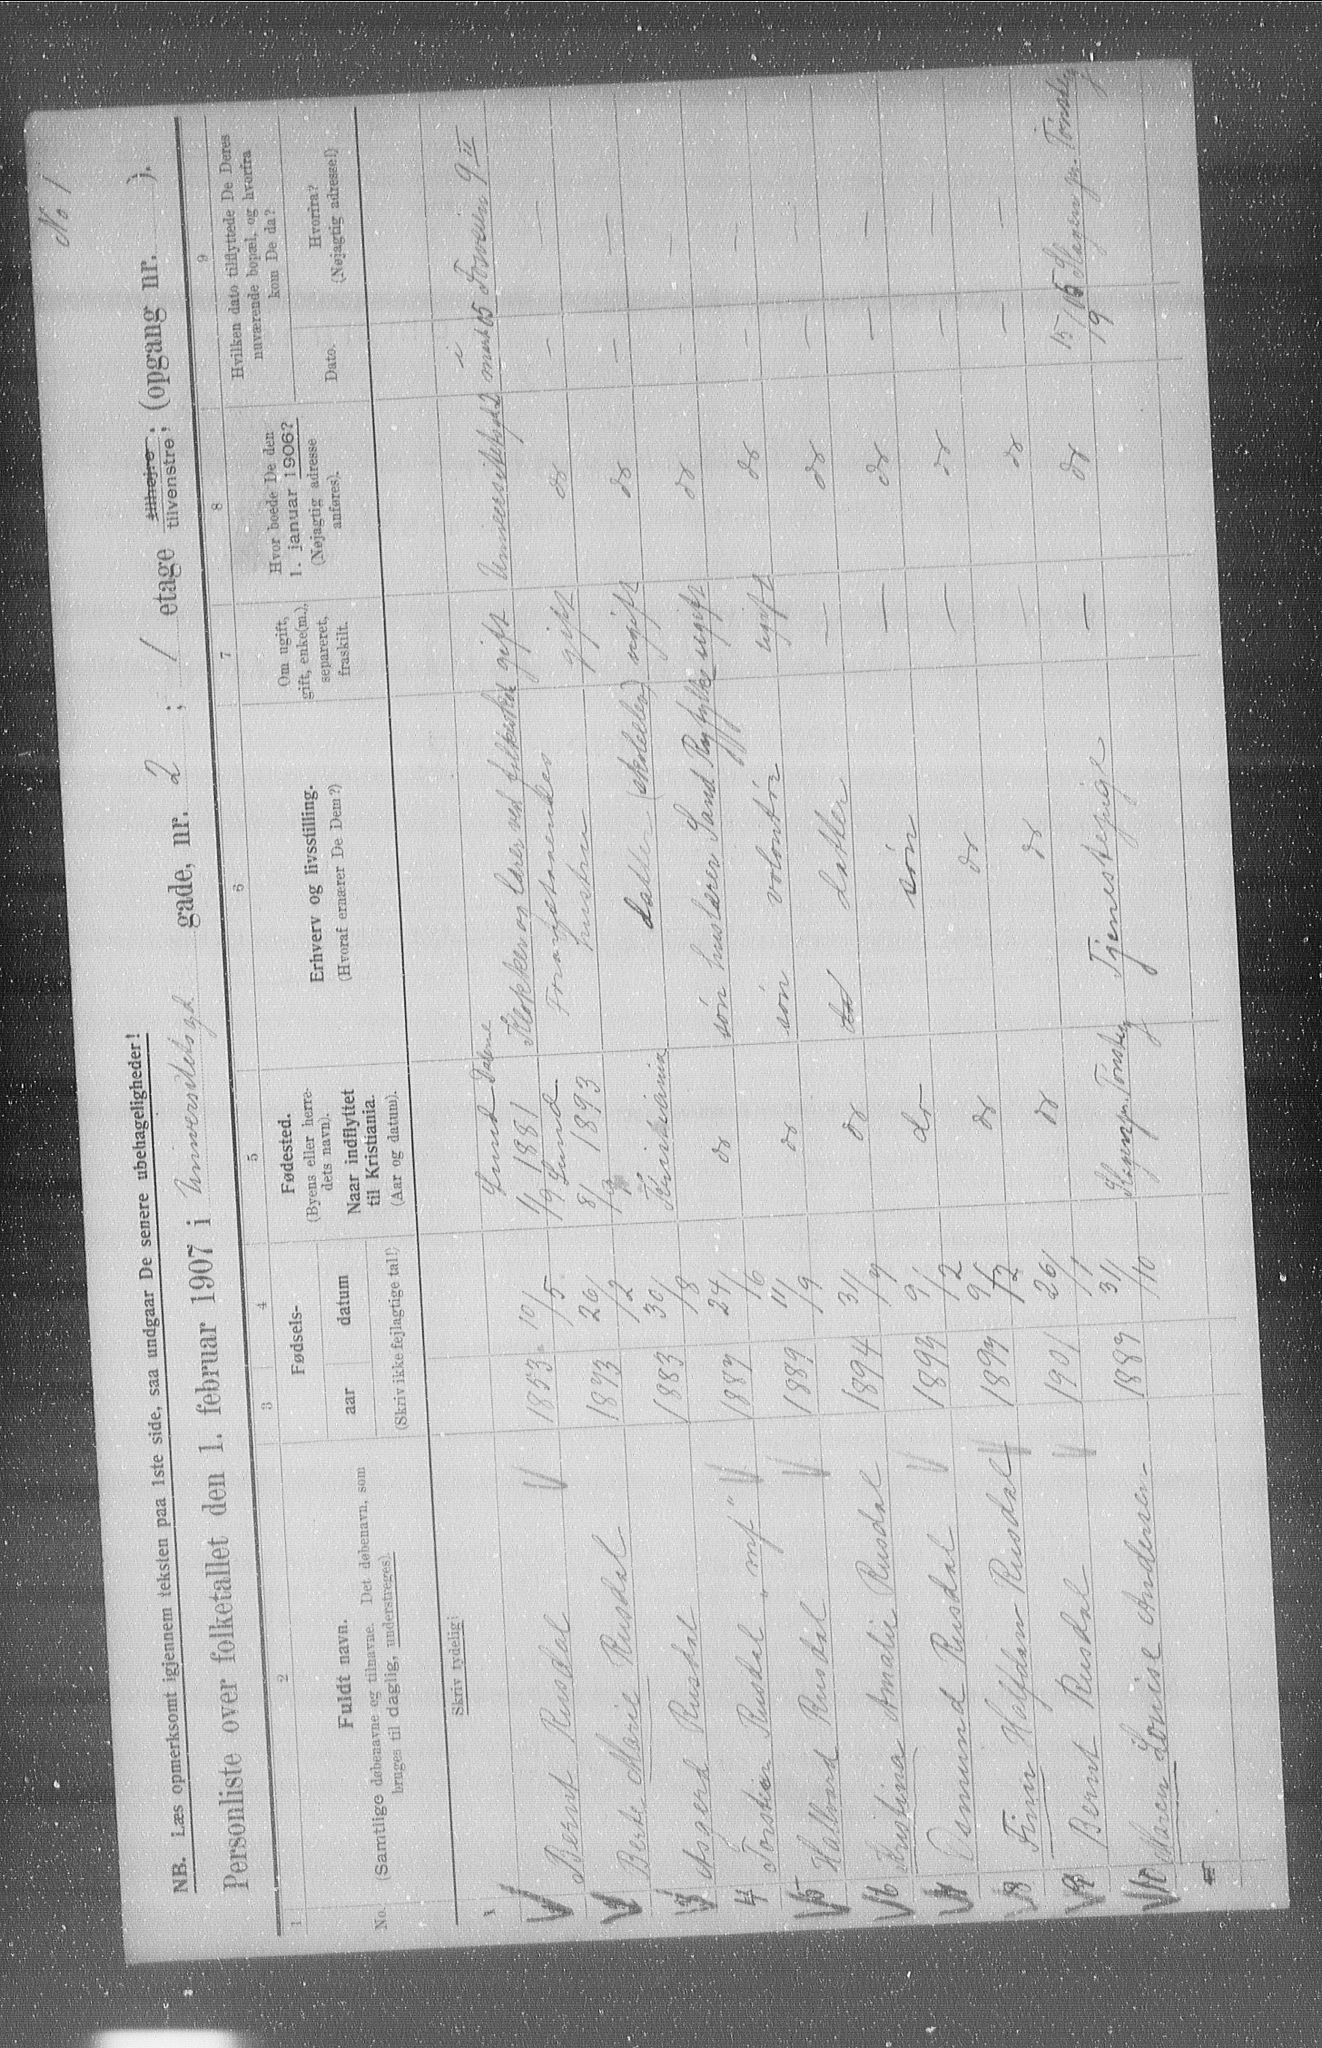 No 1
NB. Læs opmerksomt igjennem teksten paa 1ste side, saa undgaar De senere ubehageligheder!
Personliste over folketallet den 1. februar 1907 i Universitetsgd gade, nr. 2 ; 1 etage tilhøjre, tilvenstre; (opgang nr. ).
1 2 3 4 5 6 7 8 9
No. Fuldt navn. (Samtlige døbenavne og tilnavne. Det døbenavn, som bruges til daglig, understreges).
Fødsels- aar datum (Skriv ikke fejlagtige tal!)
Fødested. (Byens eller herredets navn). Naar indflyttet til Kristiania. (Aar og datum).
Erhverv og livsstilling. (Hvoraf ernærer De Dem?)
Om ugift, gift, enke(m.), separeret, fraskilt.
Hvor boede De den 1. januar 1906? (Nøjagtig adresse anføres).
Hvilken dato tilflyttede De Deres nuværende bopæl, og hvorfra kom De da?
Dato. Hvorfra? (Nøjagtig adresse!)
Skriv tydelig!
1 Bernt Rusdal 1853 10/5 Lund Dalene 1/9 1881 Klokker og lærer ved folkeskol gift Universitetsgd 2 i mars 05 9 II
Berte Marie Rusdal 1873 26/2 Lund 8/ 1893 hustru gift do — —
3 Asgerd Rusdal 1883 30/8 Kristiania datter ugift do — —
4 Torstein Rusdal " mf " 1887 24/6 do søn huslærer Sand Ryfylke ugift do
5 Hallvard Rusdal 1889 11/9 do søn volontør ugift do — —
6 Kristina Amalie Rusdal 1894 31/7 do datter — do — —
7 Osmund Rusdal 1897 9/2 do søn — do — —
8 Finn Halfdan Rusdal 1897 9/2 do do — do —
9 Bernt Rusdal 1901 26/1 do do — do — —
10 Maren Louise Andersen 1889 31/10 Slagen pr. Tønsberg Tjenestepige — do 15/9 05 Slagen pr. Tønsberg